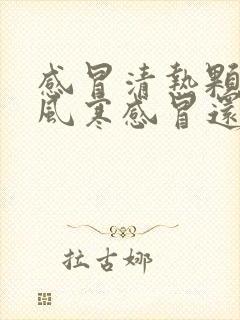 感冒清熱顆
風寒感冒還
拉古娜